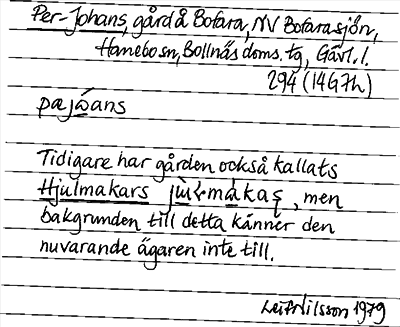 Per-Johans, gård å Bofara, NV Bofarasjön,
Hanebo sn, Bollnäs doms. tg, Gävl. l.
294 (14G7h)
pæjωans
Tidigare har gården också kallats
Hjulmakars , men
bakgrunden till detta känner den
nuvarande ägaren inte till.
Leif Nilsson 1979